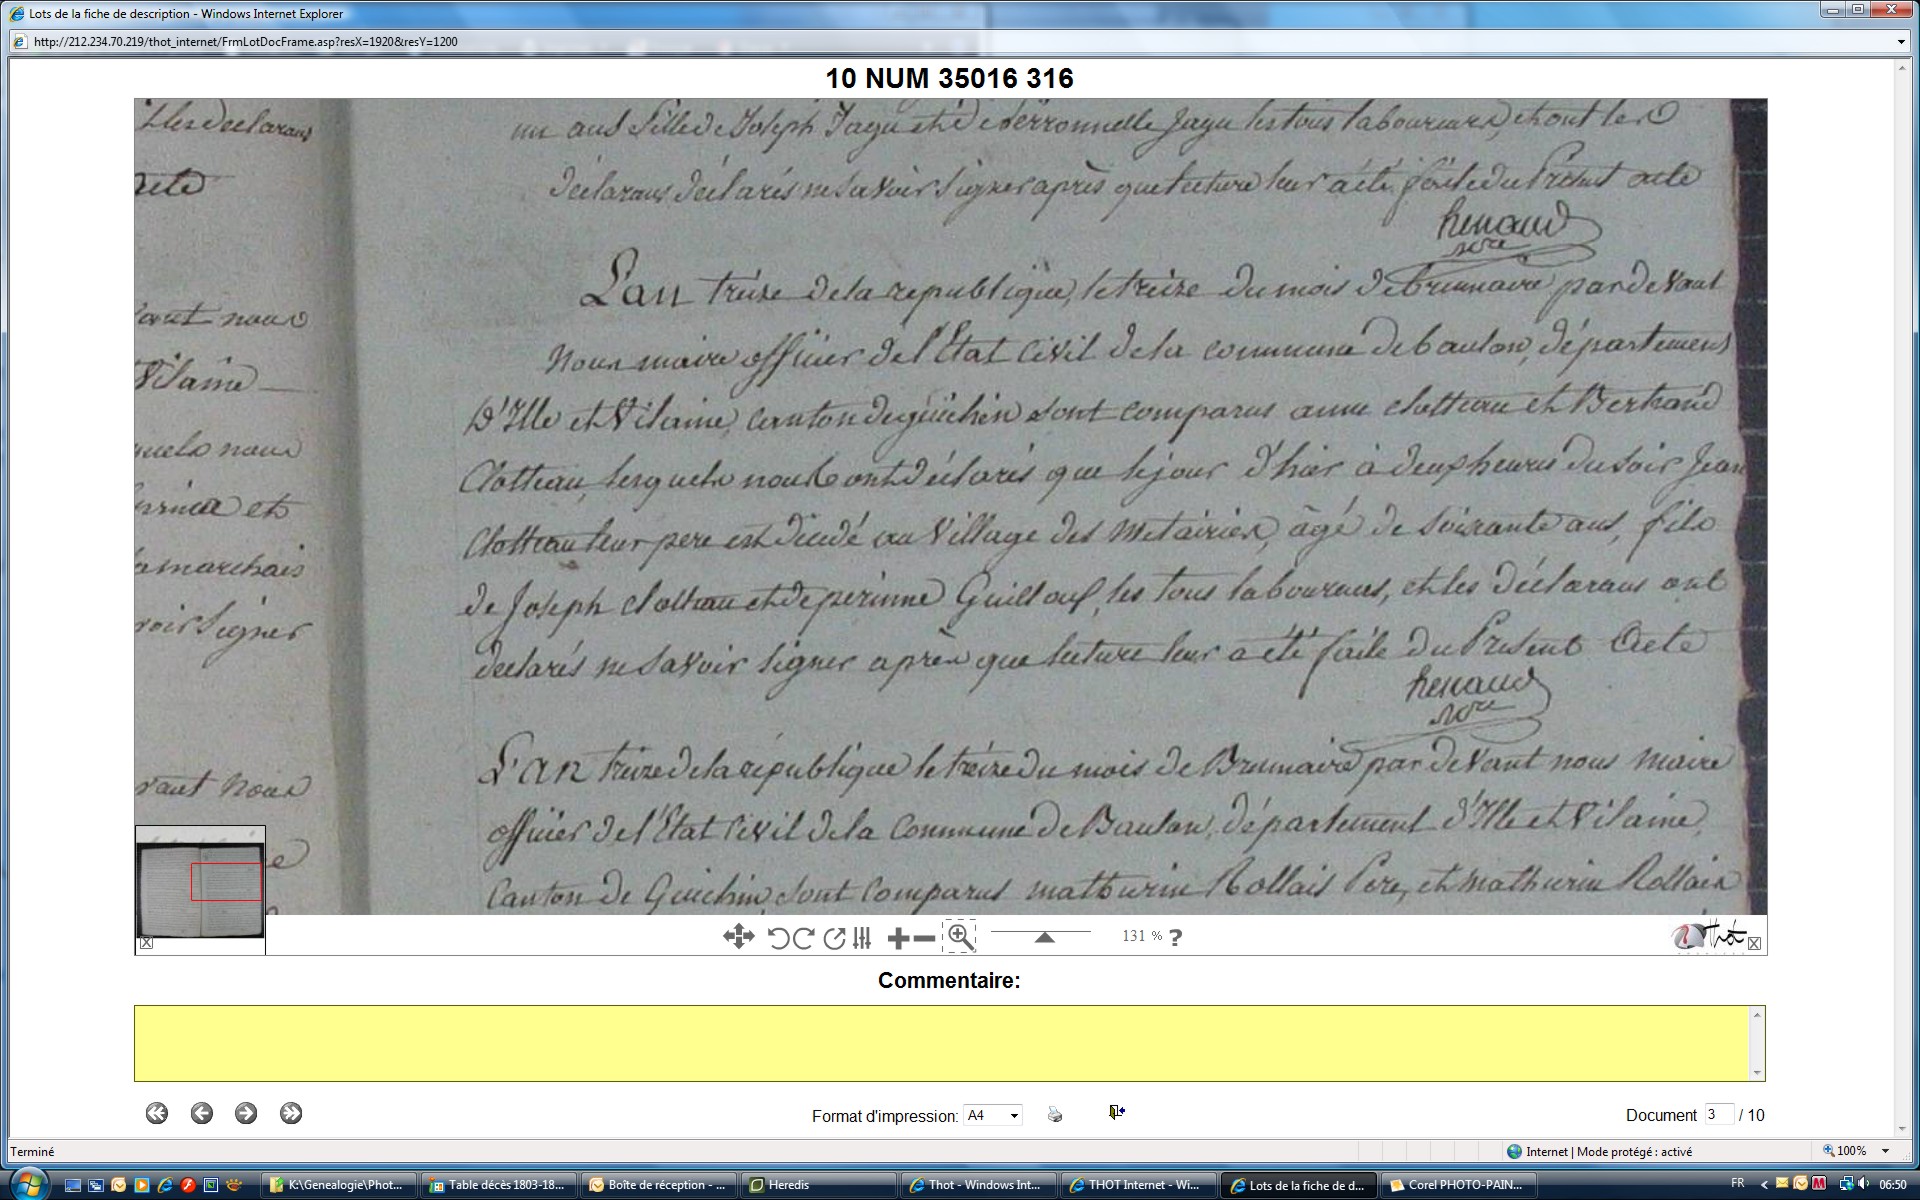 Lots de la fiche de description - Windows Internet Explorer
http://212.234.70.219/thot_internet/FrmLotDocFrame.asp?resX=1920&resY=1200
10 NUM 35016 316
un ans fille de Joseph Jagu et de perronnelle Jagu les tous laboureurs, et ont les
déclarans déclarés ne savoir signer après que lecture leur a été faite du Présent acte
henaud
L'an treize de la republique, le treize du mois de brumaire par devant
Nous maire officier de l'Etat Civil de la commune de baulon, département
D'Ille et Vilaine, canton de guichen sont comparus anne clotteau et Bertrand
Clotteau, lesquels nous ont déclarés que le jour d'hier à deux heures du soir Jean
Clotteau leur pere est décédé au Village des Metairies, âgé de soixante ans, fils
de Joseph clotteau et de perinne Guillouf, les tous laboureurs, et les déclarans ont
déclarés ne savoir signer après que lecture leur a été faite du Présent Acte
henaud
L'an treize de la république le treize du mois de Brumaire par devant nous maire
officier de l'Etat Civil de la Commune de Baulon, département d'Ille et Vilaine,
Canton de Guichen, sont Comparus mathurin Rollais Pere, et mathurin Rollais
Iles declarans
acte
vant nous
Vilaine
quels nous
et
amarchais
voir signer
vant Nous
131 % ?
Thot
Commentaire:
Format d'impression: A4
Document 3 / 10
Terminé
Internet | Mode protégé : activé
100%
K:\Genealogie\Phot...
Table décès 1803-18...
Boîte de réception - ...
Heredis
Thot - Windows Int...
THOT Internet - Wi...
Lots de la fiche de d...
Corel PHOTO-PAIN...
FR
06:50